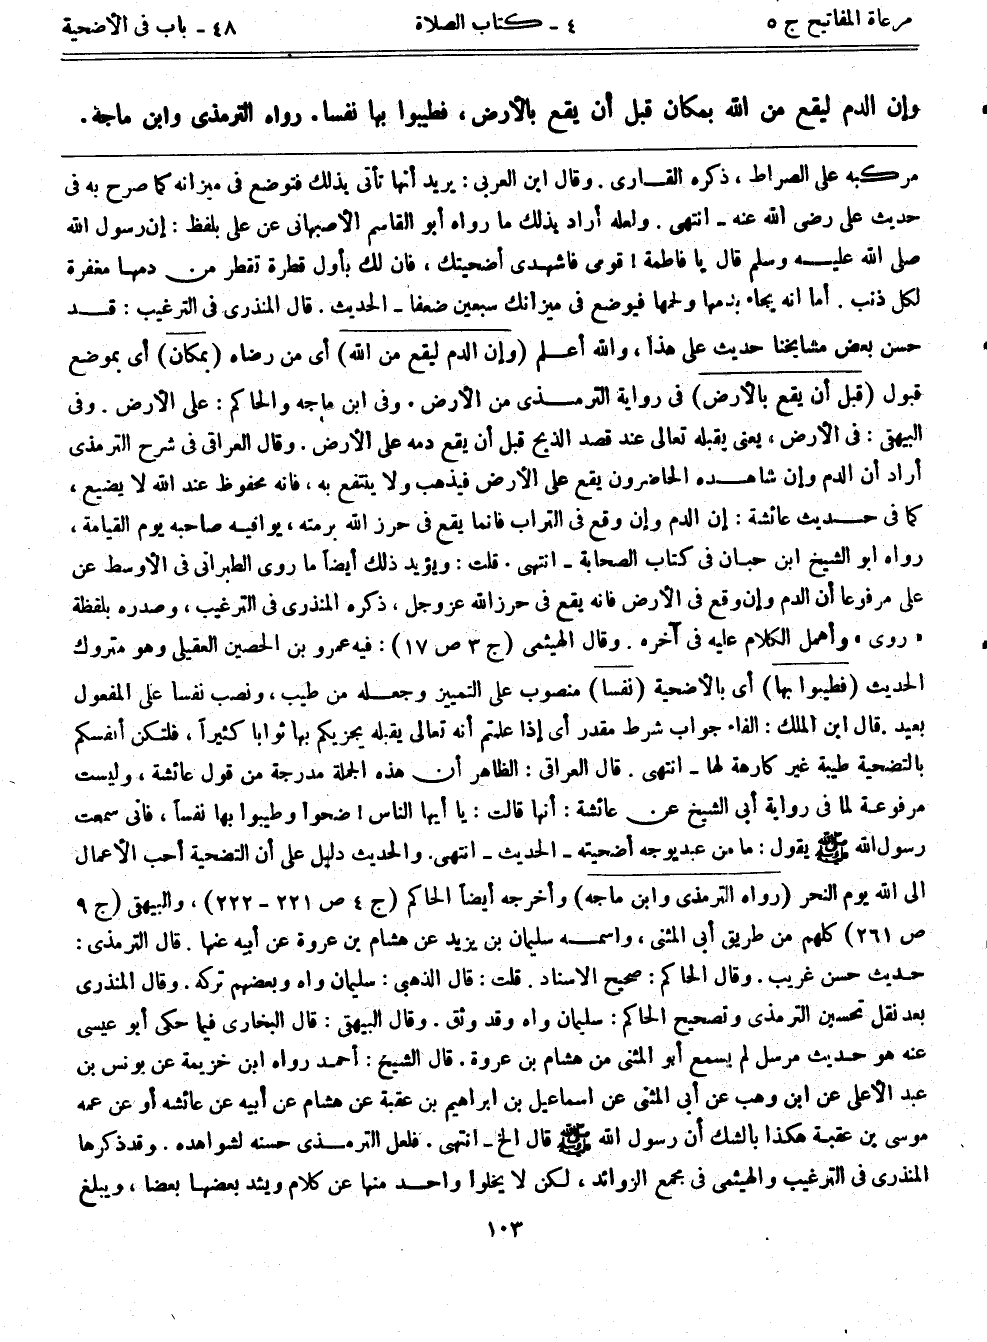 مرعاة المفاتيح ج ٥
٤ ـ كتاب الصلاة
٤٨ ـ باب فى الأضحية
وإن الدم ليقع من الله بمكان قبل أن يقع بالأرض، فطيبوا بها نفسا. رواه الترمذى وابن ماجة.
مركبه على الصراط، ذكره القارى. وقال ابن العربى: يريد أنها تأتى بذلك فتوضع فى ميزانه كما صرح به فى
حديث على رضى الله عنه ـ انتهى. ولعله أراد بذلك ما رواه أبو القاسم الأصبهانى عن على بلفظ: إن رسول الله
صلى الله عليه وسلم قال يا فاطمة! قومى فاشهدى أضحيتك، فان لك بأول قطرة تقطر من دمها مغفرة
لكل ذنب. أما انه يجاء بدمها ولحمها فيوضع فى ميزانك سبعين ضعفا ـ الحديث. قال المنذرى فى الترغيب: قد
حسن بعض مشايخنا حديث على هذا، والله أعلم (وإن الدم ليقع من الله) أى من رضاه (بمكان) أى بموضع
قبول (قبل أن يقع بالأرض) فى رواية الترمذى من الأرض. وفى ابن ماجه والحاكم: على الأرض. وفى
البيهقى: فى الأرض، يعنى يقبله تعالى عند قصد الذبح قبل أن يقع دمه على الأرض. وقال العراقى فى شرح الترمذى
أراد أن الدم وإن شاهده الحاضرون يقع على الأرض فيذهب ولا ينتفع به، فانه محفوظ عند الله لا يضيع،
كما فى حديث عائشة: إن الدم وإن وقع فى التراب فانما يقع فى حرز الله برمته، يوافيه صاحبه يوم القيامة،
رواه ابو الشيخ ابن حبان فى كتاب الصحابة ـ انتهى. قلت: ويؤيد ذلك أيضاً ما روى الطبرانى فى الأوسط عن
على مرفوعا أن الدم وإن وقع فى الأرض فانه يقع فى حرز الله عزوجل، ذكره المنذرى فى الترغيب، وصدره بلفظة
«روى» وأهمل الكلام عليه فى آخره. وقال الهيثمى (ج ٣ ص ١٧): فيه عمرو بن الحصين العقيلى وهو متروك
الحديث (فطيبوا بها) أى بالأضحية (نفسا) منصوب على التمييز وجعله من طيب، ونصب نفسا على المفعول
بعيد. قال ابن الملك: الفاء جواب شرط مقدر أى إذا علمتم أنه تعالى يقبله يجزيكم بها ثوابا كثيراً، فلتكن أنفسكم
بالتضحية طيبة غير كارهة لها ـ انتهى. قال العراقى: الظاهر أن هذه الجملة مدرجة من قول عائشة، وليست
مرفوعة لما فى رواية أبى الشيخ عن عائشة: أنها قالت: يا أيها الناس! ضحوا وطيبوا بها نفساً، فانى سمعت
رسول الله ﷺ يقول: ما من عبد يوجه أضحيته ـ الحديث ـ انتهى. والحديث دليل على أن التضحية أحب الأعمال
الى الله يوم النحر (رواه الترمذى وابن ماجه) وأخرجه أيضاً الحاكم (ج ٤ ص ٢٢١ ـ ٢٢٢)، والبيهقى (ج ٩
ص ٢٦١) كلهم من طريق أبى المثنى، واسمه سليمان بن يزيد عن هشام بن عروة عن أبيه عنها. قال الترمذى:
حديث حسن غريب. وقال الحاكم: صحيح الاسناد. قلت: قال الذهبى: سليمان واه وبعضهم تركه. وقال المنذرى
بعد نقل تحسين الترمذى وتصحيح الحاكم: سليمان واه وقد وثق. وقال البيهقى: قال البخارى فيما حكى أبو عيسى
عنه هو حديث مرسل لم يسمع أبو المثنى من هشام بن عروة. قال الشيخ: أحمد رواه ابن خزيمة عن يونس بن
عبد الأعلى عن ابن وهب عن أبى المثنى عن اسماعيل بن ابراهيم بن عقبة عن هشام عن أبيه عن عائشه أو عن عمه
موسى بن عقبة هكذا بالشك أن رسول الله ﷺ قال الخ ـ انتهى. فلعل الترمذى حسنه لشواهده. وقد ذكرها
المنذرى فى الترغيب والهيثمى فى مجمع الزوائد، لكن لا يخلوا واحد منها عن كلام ويشد بعضها بعضا، ويبلغ
١٠٣